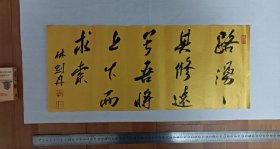 路漫〻
其修远
兮吾将
上下而
求索
林剑丹